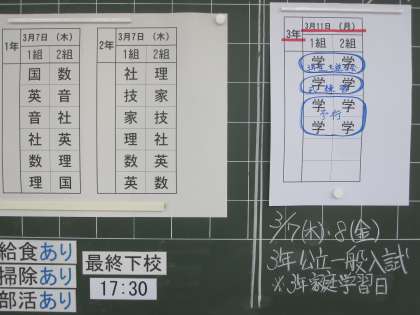 1年
3月7日 (木)
1組 2組
国 数
英 音
音 社
社 英
数 理
理 国
2年
3月7日 (木)
1組 2組
社 理
技 家
家 技
音 社
数 音
英 数
3年
3月11日 (月)
1組 2組
学 学
学 学
学 学
予行
学 学
給食あり
掃除あり
部活あり
最終下校
17:30
3/7(木)・8(金)
3年公立一般入試
※3年家庭学習日